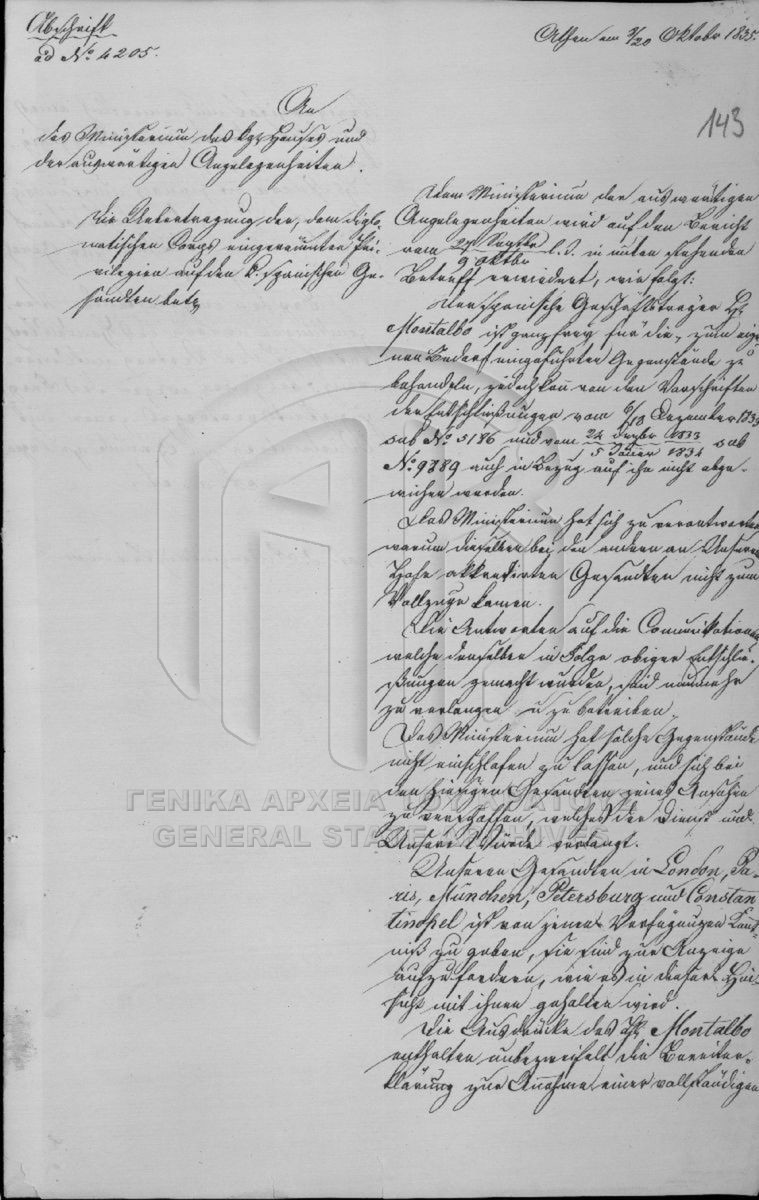 Abschrift
ad No. 4205.
Athen am 8/20 Oktober 1835.
143
An
das Ministerium des kgl. Hauses und
der auswärtigen Angelegenheiten.
Die Uebertragung der, dem diplo-
matischen Corps eingeräumten Pri-
vilegien auf den k. spanischen Ge-
sandten betr.
Dem Ministerium der auswärtigen
Angelegenheiten wird auf den Bericht
vom 27 Septbr / 9 Oktbr l. J. in unten stehenden
Betreff erwiedert, wie folgt:
Der spanische Geschäftsträger Hr.
Montalbo ist ganz frey für die, zum eige-
nen Bedarf eingeführten Gegenstände zu
behandeln, jedoch kann von den Vorschriften
der Entschließungen vom 6/18 Dezember 183
sub No. 5186 und vom 24 Dezbr 1833 / 5 Januar 1834 sub
No. 9789 auch in Bezug auf ihn nicht abge-
wichen werden.
Das Ministerium hat sich zu verantworten
warum dieselben bei den andern an Unserem
Hofe akkreditirten Gesandten nicht zum
Vollzuge kamen.
Die Antworten auf die Comunikationen
welche denselben in Folge obiger Entschlie-
ßungen gemacht wurden, sind nunmehr
zu verlangen u. zu betreiben.
Das Ministerium hat solche Gegenstände
nicht einschlafen zu lassen, und sich bei
den hiesigen Gesandten jenes Ansehen
zu verschaffen, welches der Dienst und
Unsere Würde verlangt.
Unseren Gesandten in London, Pa-
ris, München, Petersburg und Constan
tinopel ist von jenen Verfügungen Kennt-
niß zu geben, sie sind zur Anzeige
aufzufordern, wie es in dieser Hin-
sicht mit ihnen gehalten wird.
Die Ausdrücke des Hr. Montalbo
enthalten unbezweifelt die Bereiter-
klärung zur Annahme einer vollständigen
ΓΕΝΙΚΑ ΑΡΧΕΙΑ ΤΟΥ ΚΡΑΤΟΥΣ
GENERAL STATE ARCHIVES